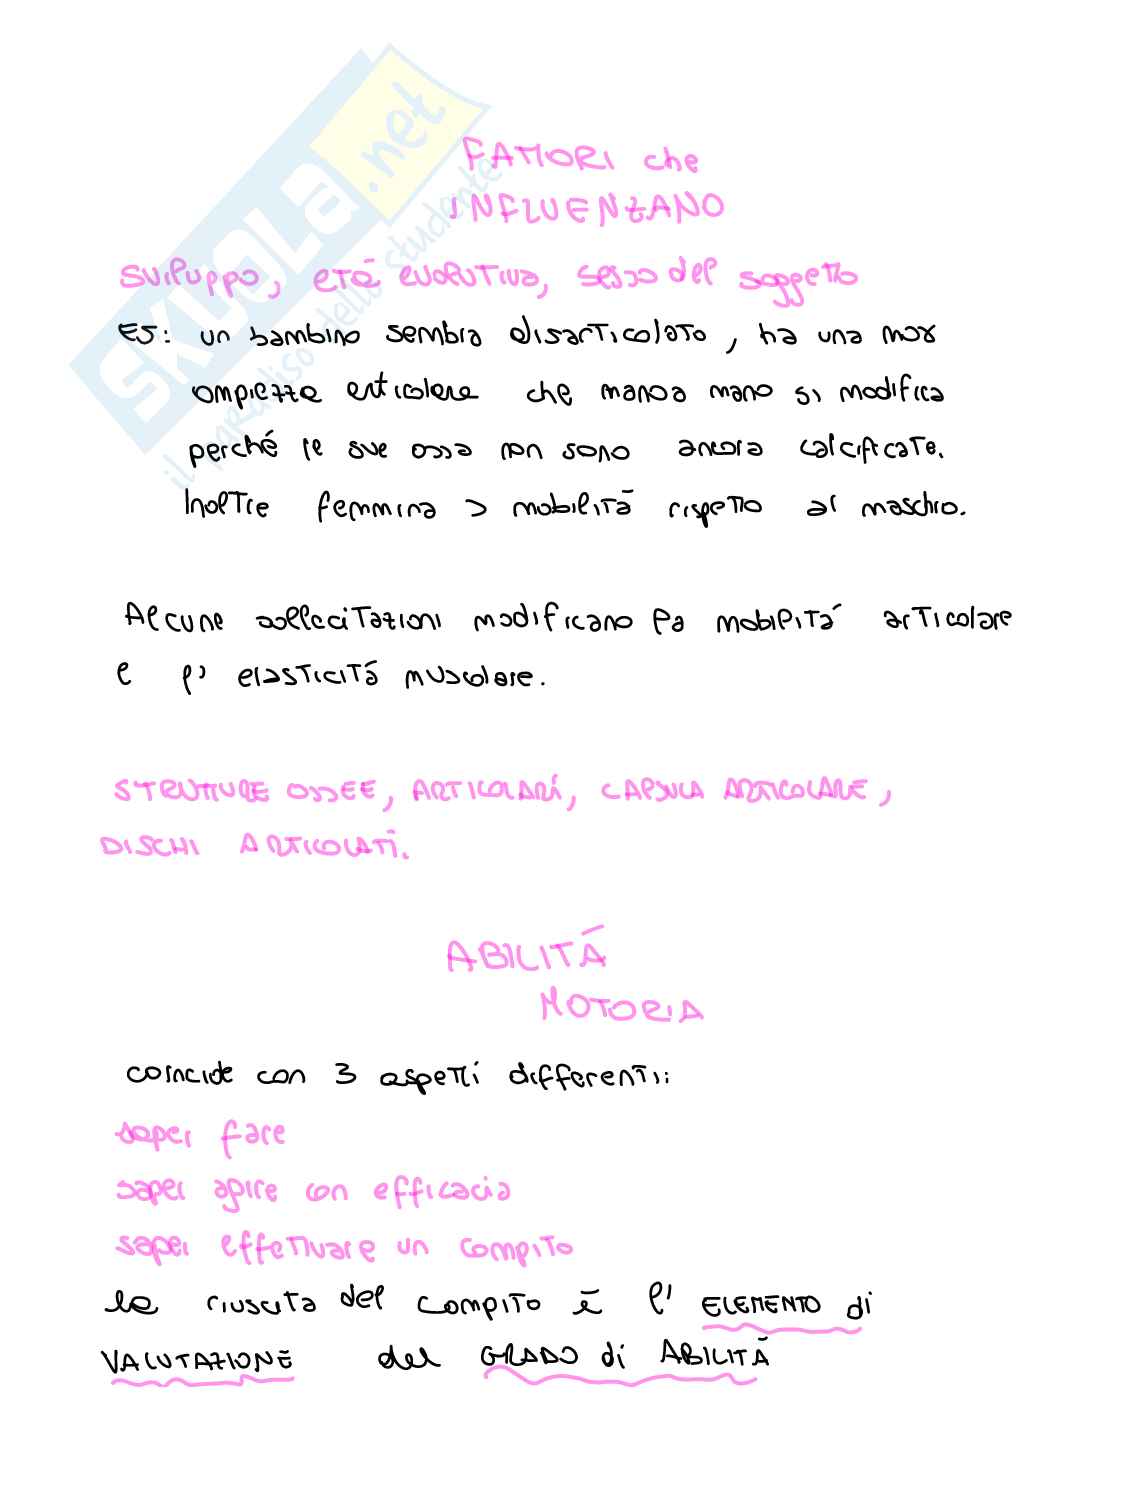 SKUOLA.net
il paradiso dello studente
FATTORI che
INFLUENZANO
sviluppo, età evolutiva, sesso del soggetto
ES: un bambino sembra disarticolato, ha una max
ampiezza articolare che mano a mano si modifica
perché le sue ossa non sono ancora calcificate.
Inoltre femmina > mobilità rispetto al maschio.
Alcune sollecitazioni modificano la mobilità articolare
e l' elasticità muscolare.
STRUTTURE OSSEE, ARTICOLARI, CAPSULA ARTICOLARE,
DISCHI ARTICOLATI.
ABILITÁ
MOTORIA
coincide con 3 aspetti differenti:
saper fare
saper agire con efficacia
saper effettuare un compito
la riuscita del compito è l' ELEMENTO di
VALUTAZIONE del GRADO di ABILITÀ